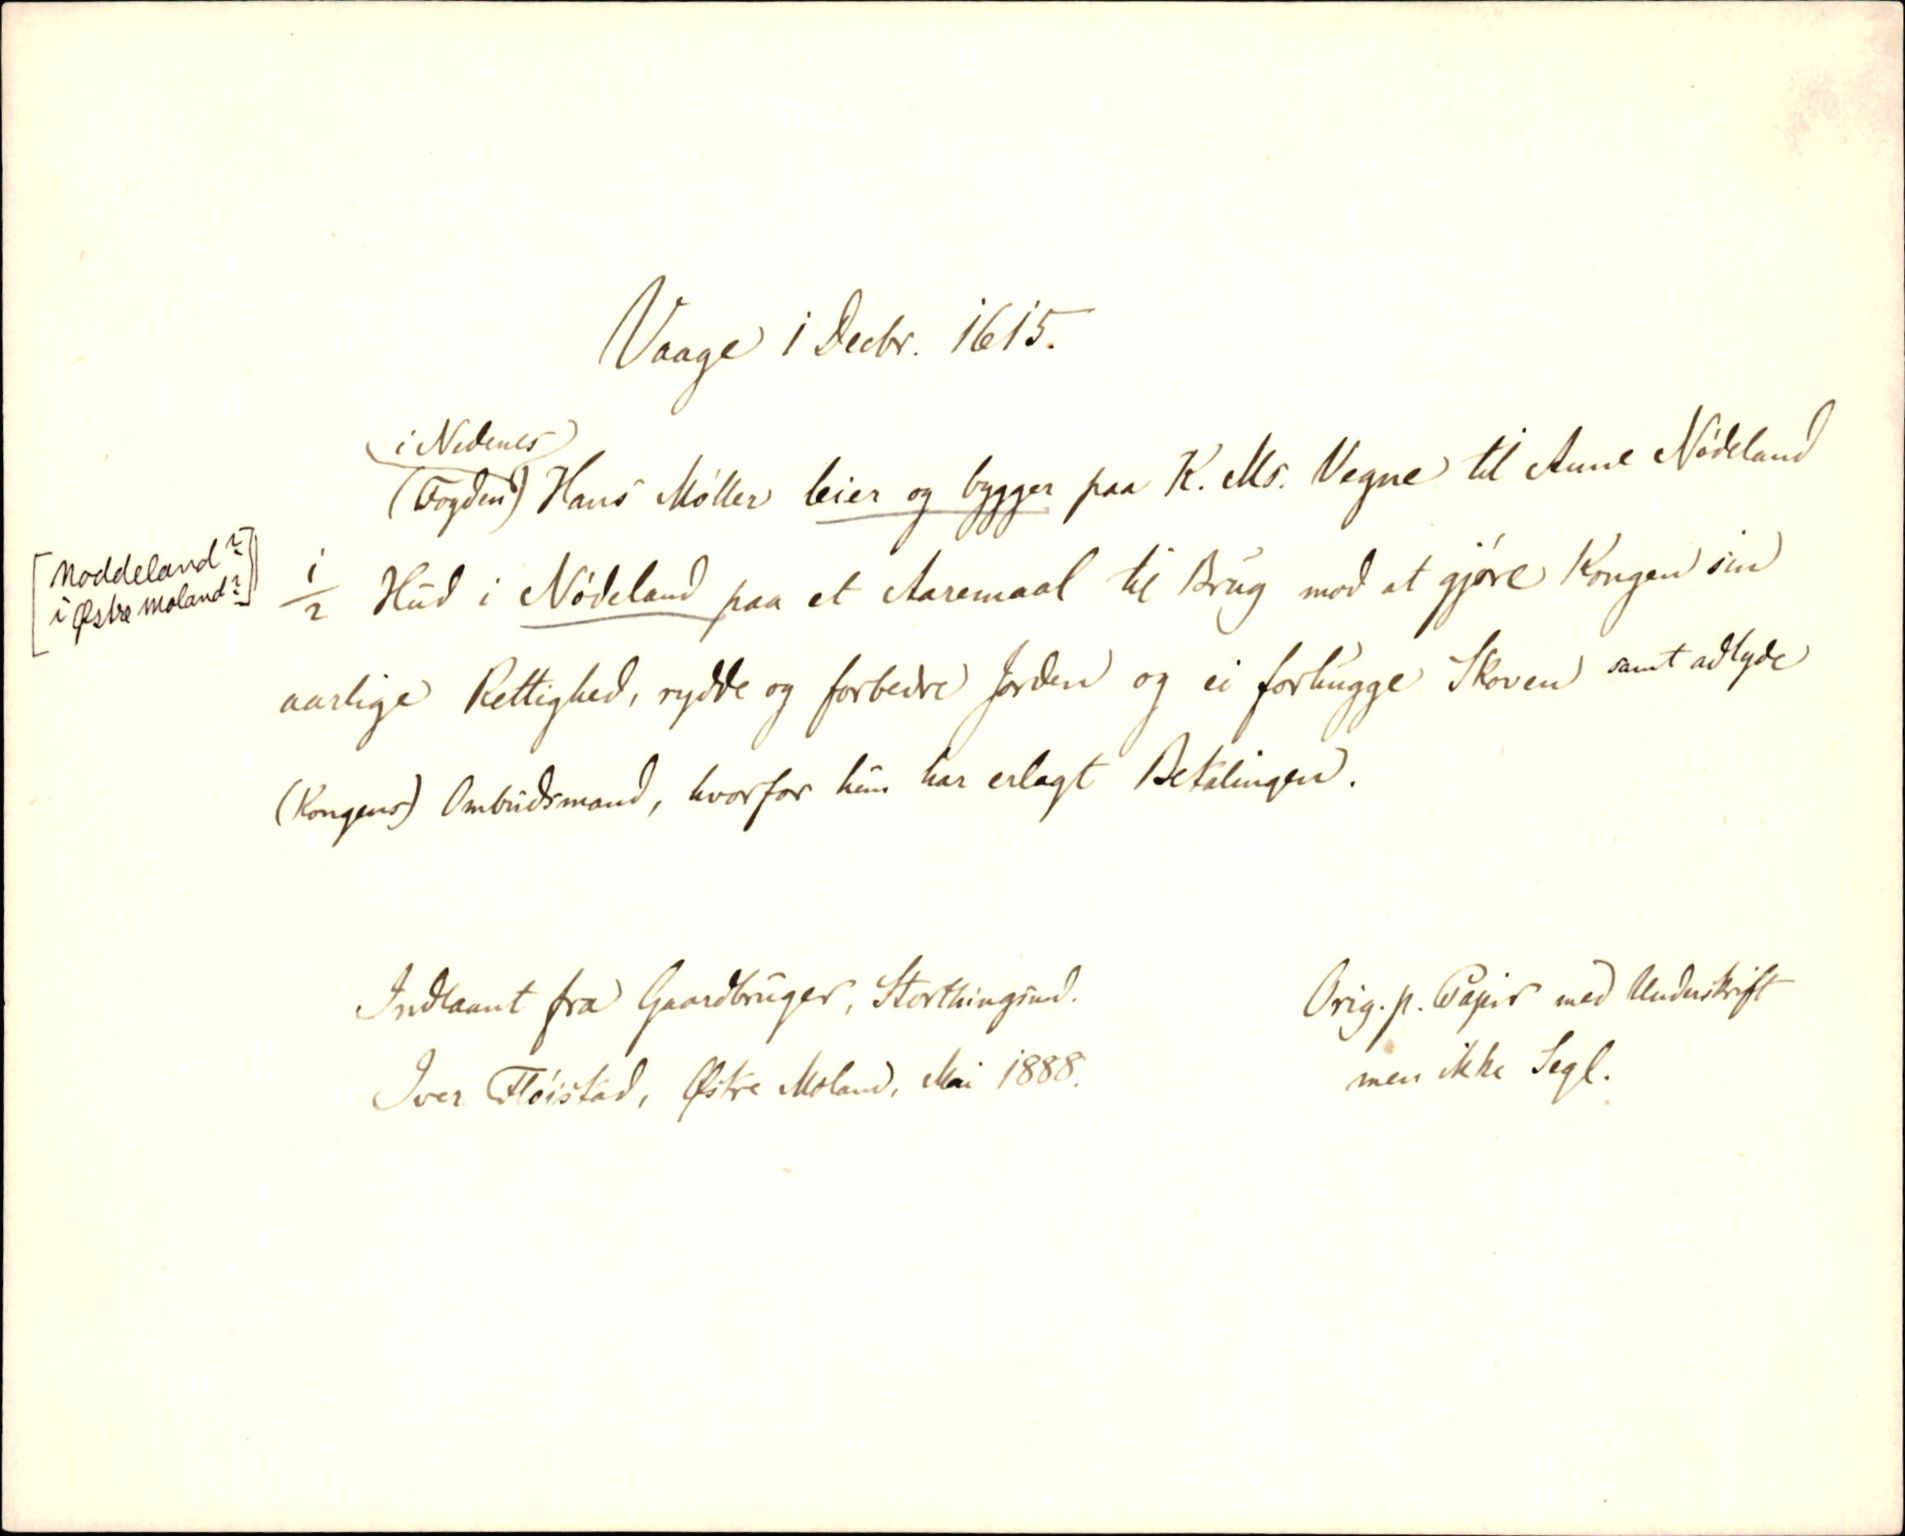 Vaage 1 Decbr. 1615.
(i Nedenes)
(Fogden) Hans Møller leier og bygger paa K. Ms. Vegne til Anne Nödeland
[Noddeland?
i Østre Moland?]
1/2 Hud i Nödeland paa et Aaremaal til Brug mod at gjöre Kongen sin
aarlige Rettighed, rydde og forbedre Jorden og ei forhugge Skoven samt adlyde
(Kongens) Ombudsmand, hvorfor hun har erlagt Betalingen.
Indlaant fra Gaardbruger, Storthingsmd.
Iver Flöistad, Østre Moland, Mai 1888.
Orig. p. Papir med Underskrift
men ikke Segl.